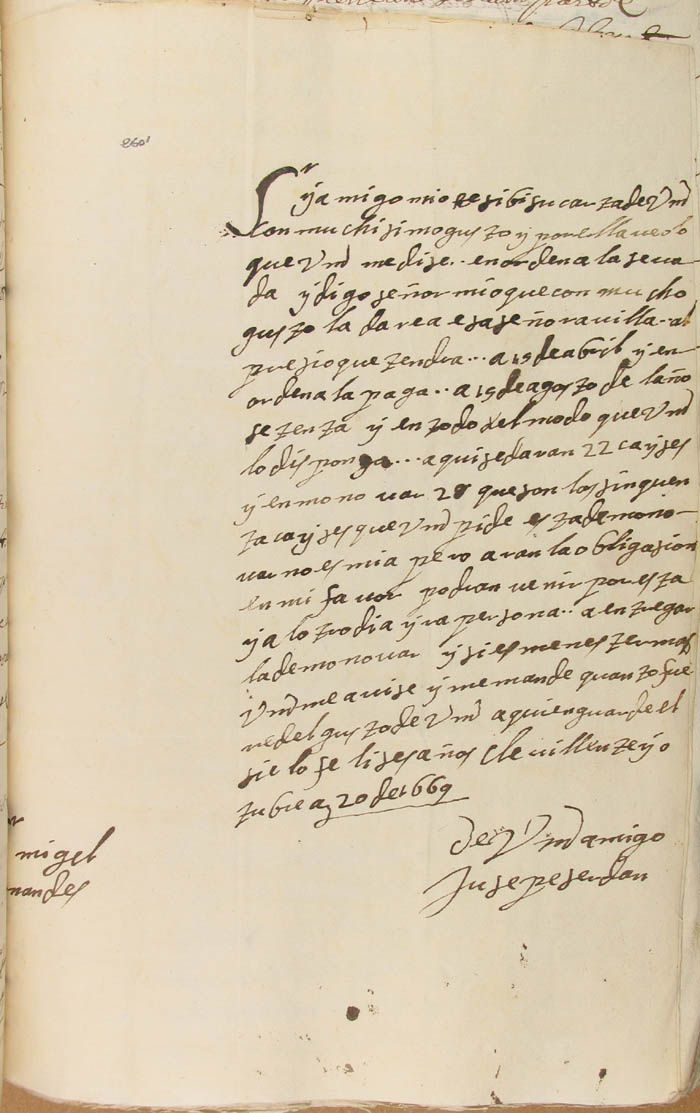 260
Sr y amigo mio resibi su carta de Vmd
con muchisimo gusto y por ella veo lo
que Vmd me dise.. en orden a la seva
da y digo señor mio que con mucho
gusto la dare a esa señora villa. al
presio que tendra... a 15 de abril y en
orden a la paga.. a 15 de agosto de laño
setenta y en todo del modo que Vmd
lo disponga... aqui se daran 22 cayses
y en monovar 28 que son los sinquen
ta cayses que Vmd pide esta de mono
var no es mia pero aran la obligasion
en mi favor podran venir por esta
y a lotro dia yra persona.. a entregar
la de monovar y si es menester mas
Vmd me avise y me mande quanto fue
re del gusto de Vmd a quien guarde el
sielo felises años Clevillente y o
tubre a 20 de 1669
de Vmd amigo
Jusepe serdan
migel
nandes